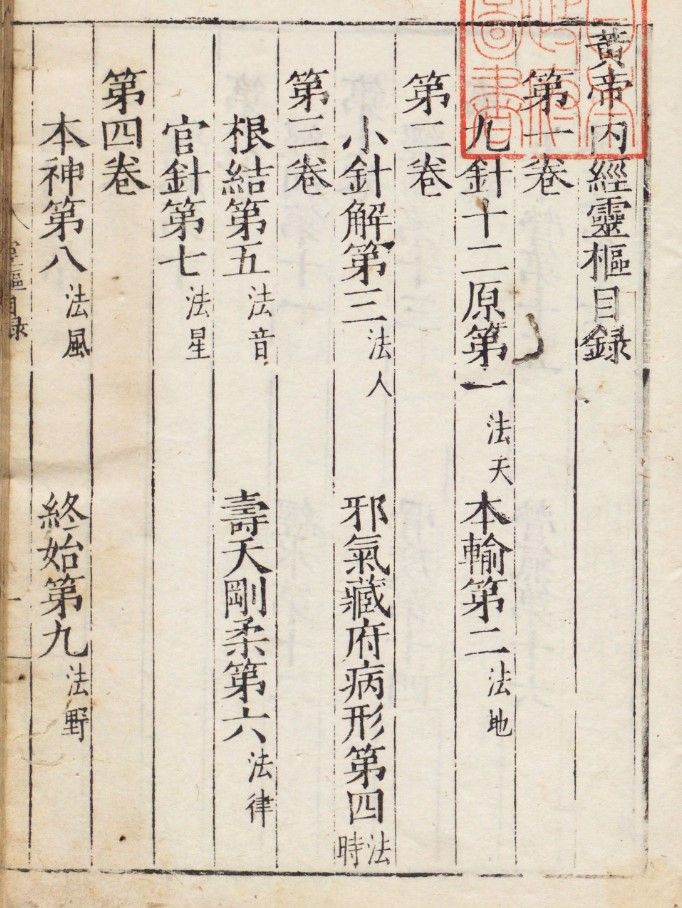 黃帝內經靈樞目錄
第一卷
九針十二原第一 法天 本輸第二 法地
第二卷
小針解第三 法人 邪氣藏府病形第四 法時
第三卷
根結第五 法音 壽夭剛柔第六 法律
官針第七 法星
第四卷
本神第八 法風 終始第九 法野